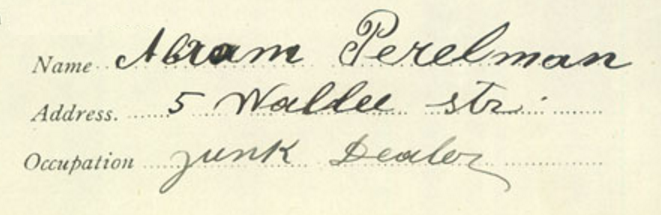 Name Abram Perelman
Address. 5 Wallee str.
Occupation Junk Dealer